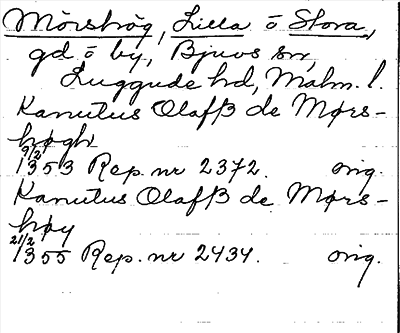 Mörshög, Lilla o Stora,
gd o by, Bjuvs sn,
Luggude hd, Malm. l.
Kanutus Olafß de Mørs-
høgh
9/2 1353 Rep. nr 2372. orig.
Kanutus Olafß de Mørs-
høy
21/2 1355 Rep. nr 2434. orig.